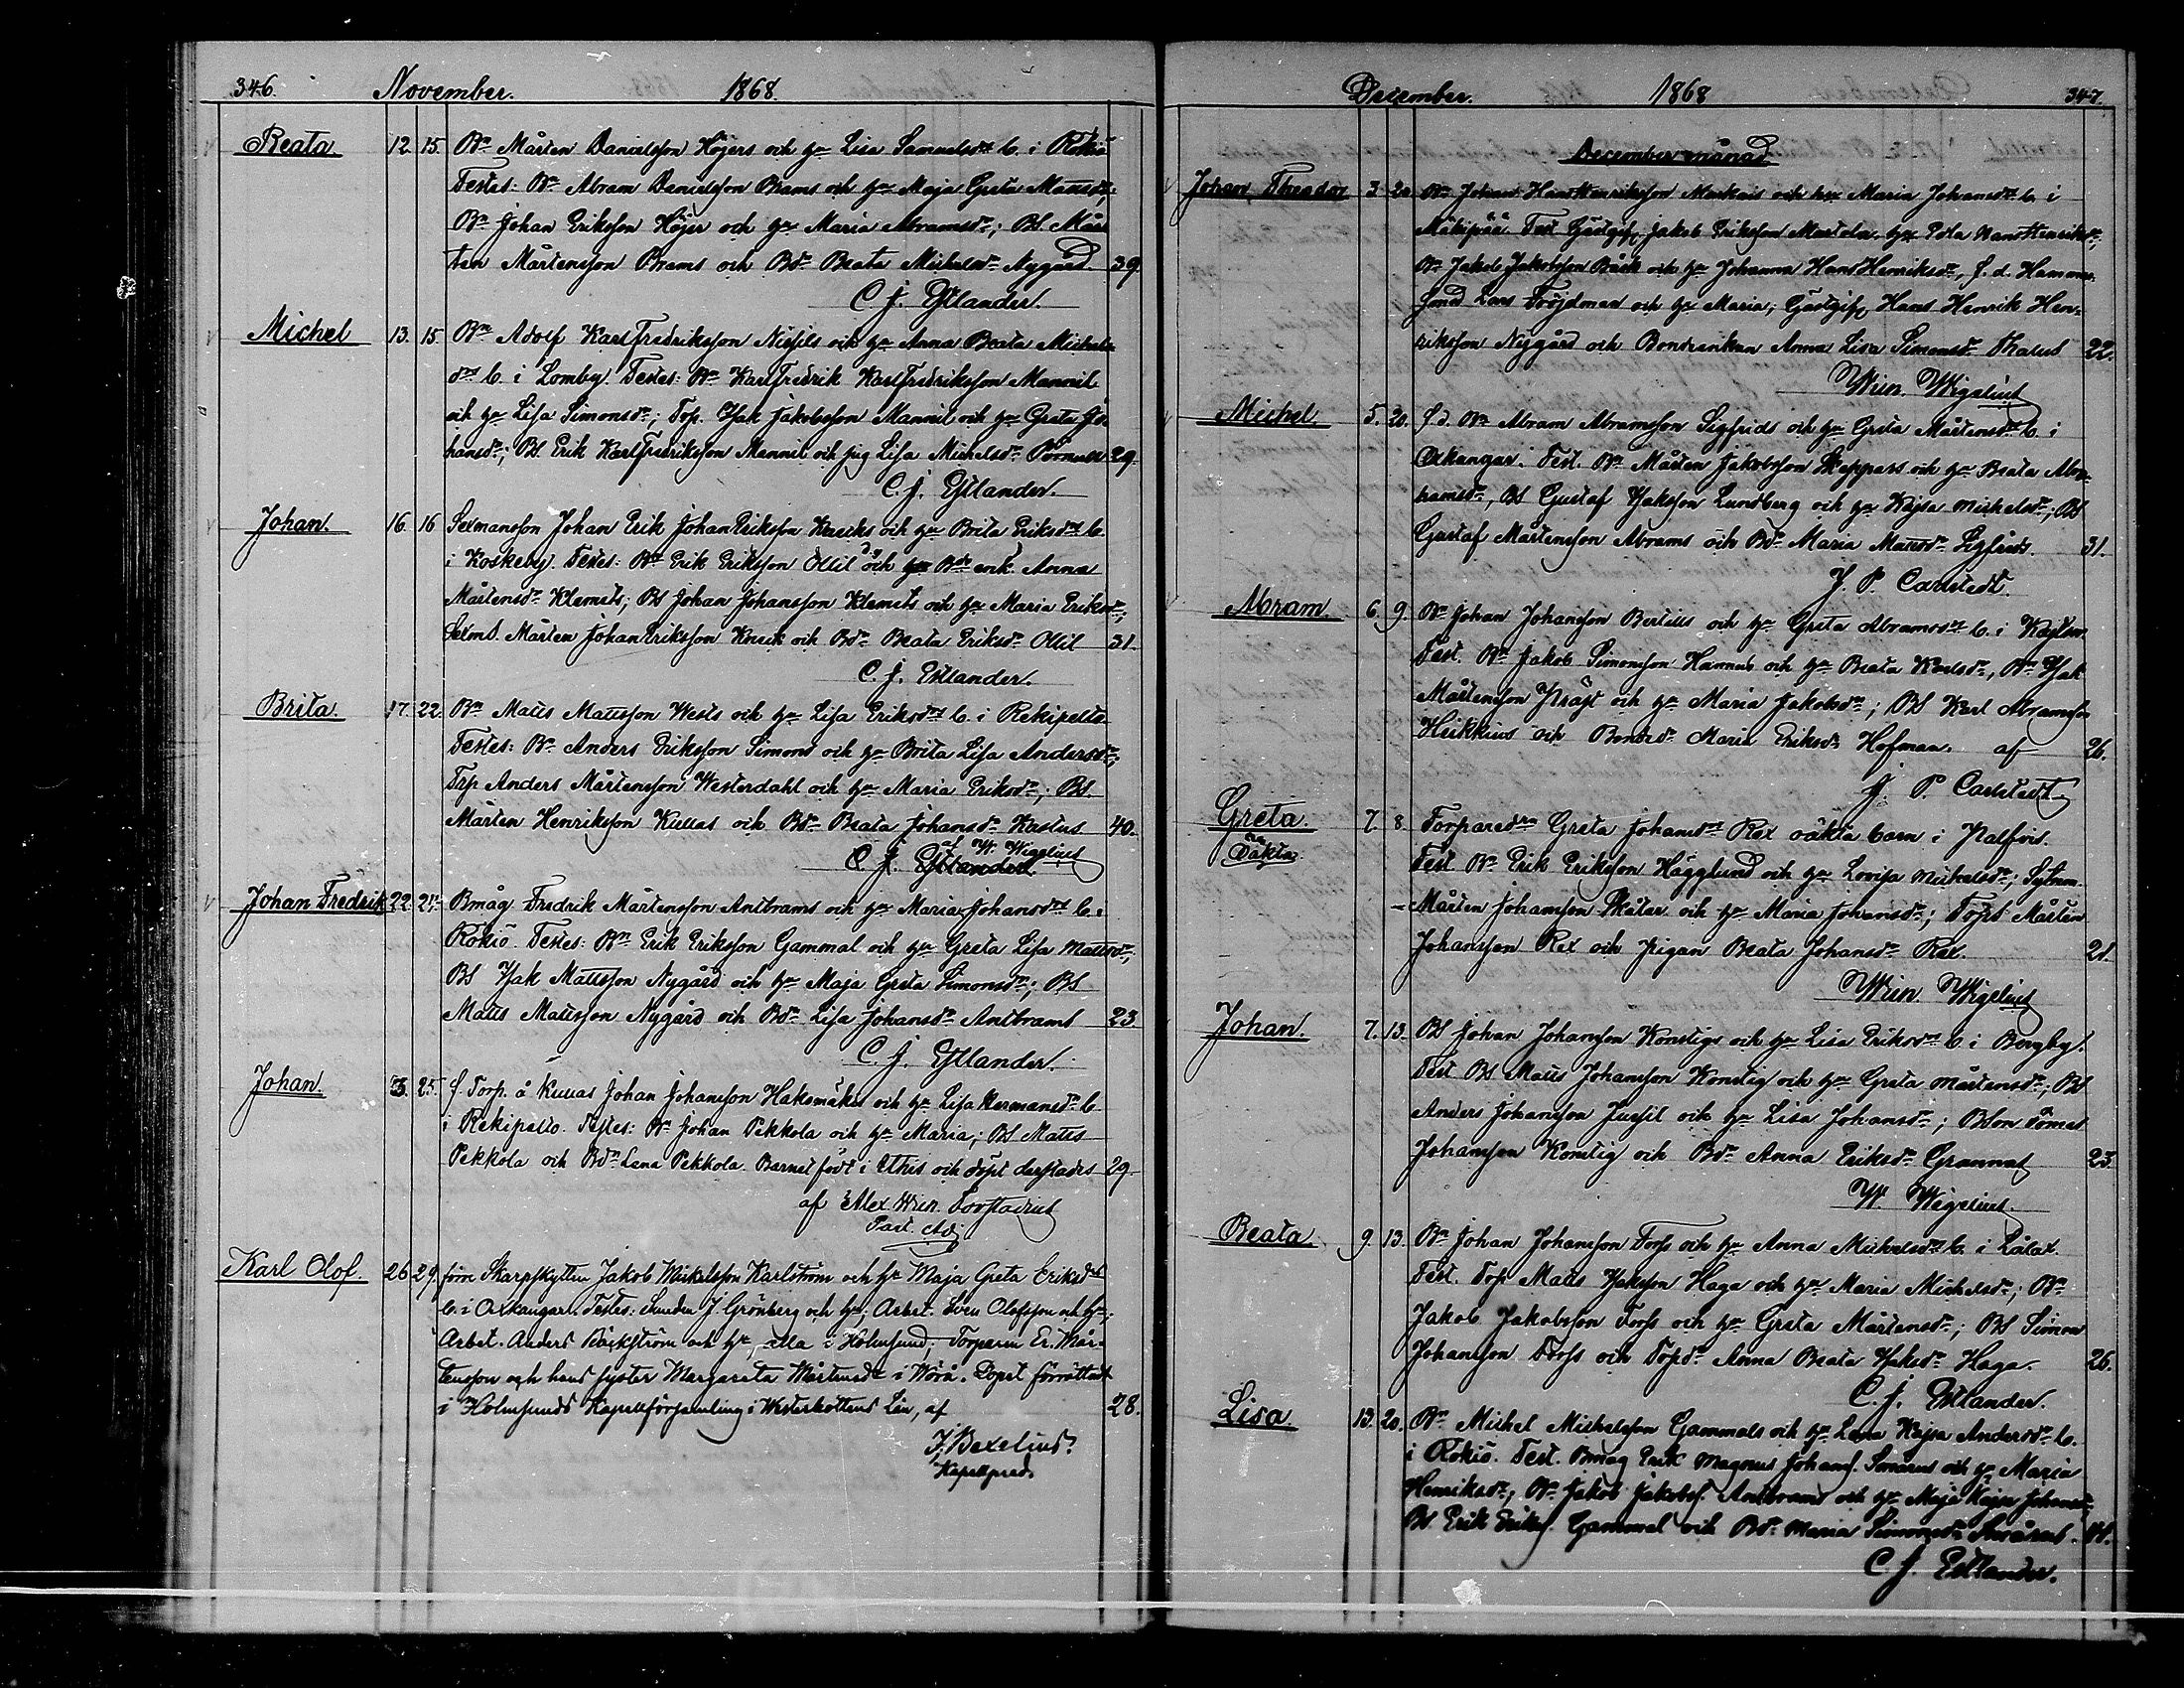 346. November. 1868.
Beata. 12. 15. Bn Mårten Danielsson Höjers och hu Lisa Samuelsdr b. i Rökiö
Testes: Bn Abram Danielsson Brams och hu Maja Greta Mattsdr;
Bn Johan Eriksson Höjer och hu Maria Abramsdr; BS Mår
ten Mårtensson Brams och Bdr Beata Michelsdr Nygård. 39.
C. J. Estlander.
Michel 13. 15. Bn Adolf Karlfredriksson Nissils och hu Anna Beata Michels
dr b. i Lomby. Testes: Bn Karlfredrik Karlfredriksson Mannil
och hu Lisa Simonsdr; Torp. Isak Jakobsson Mannil och hu Greta Jo
hansdr; BS. Erik Karlfredriksson Mannil och pig Lisa Michelsdr 29.
C. J. Estlander.
Johan. 16. 16 Sexmansson Johan Erik JohanEriksson och hu Brita Eriksdr b.
i Koskeby. Testes: Bn Erik Eriksson Ollil och Bde enk. Anna
Mårtensdr Klemets; BS Johan Johansson Klemets och hu Maria Eriksdr;
Sexms. Mårten JohanEriksson och Bdr Beata Eriksdr Ollil 31.
C. J. Estlander.
Brita. 17. 22. Bn Matts Mattsson Wests och hu Lisa Eriksdr b. i Rekipelto
Testes: Bn Anders Eriksson Simons och hu Brita Lisa Andersdr;
Trp Anders Mårtensson Westerdahl och hu Maria Eriksdr; BS.
Mårten Henriksson Kullas och Bdr Beata Johansdr Kastus 40.
af W. Wigelius
C. J. Estlander.
Johan Fredrik 22. Bmåg Fredrik Mårtensson Antbrams och hu Maria Johansdr b. i
Rökiö. Testes: Bn Erik Eriksson Gammal och hu Greta Lisa Mattsdr;
BS Isak Mattsson Nygård och hu Maja Greta Simonsdr; BS
Matts Mattsson Nygård och Bdr Lisa Johansdr Antbrams 23.
C. J. Estlander.
Johan. 25. f. Torp. å Kullas Johan Johansson Hakomäki och hu Lisa Hermansdr b.
i Rekipelto. Testes: Bn Johan Pekkola och hu Maria; BS Matts
Pekkola och Bdr Lena Pekkola. Barnet född i och döpt derstädes 29.
af Alex. Wilh. Forstadius
Past. Adj.
Karl Olof. 26 29. förre Skarpskytten Jakob Mickelsson Karlström och hu Maja Greta Eriksdr
b. i Oxkangar. Testes: J. Grönberg och hu; Arbet. Sven Olofsson och hu;
Arbet. Anders Bäckström och hu, alla i Holmsund. Torparen Er. Mår-
tensson och hans syster Margareta Mårtensdr i Wörå. Dopet förrättadt
i Holmsunds Kapellförsamling i Westerbottens Län, af 28.
J. Bexelius.
Kapellpred.
December. 1868 347.
December månad
Johan Theodor 3 20 Bn Johan HansHenriksson och hu Maria Johansdr b. i
Mäkipää Test Gästgif Jakob Eriksson Martela hu HansHenriksdr;
Bn Jakob Jakobsson Bäck och hu Johanna HansHenriksdr, f. d.
Lars Fröjdman och hu Maria; Gästgif Hans Henrik Hen-
riksson Nygård och Bondeenkan Anna Lisa Simonsdr 22.
Wilh. Wigelius
Michel 5. 20. f. d. Bn Abram Abramsson Sigfrids och hu Greta Mårtensdr b. i
Oxkangar. Test. Bn Mårten Jakobsson Skeppars och hu Beata Abra-
hamsdr, BS Gustaf Isaksson Lundberg och hu Kajsa Michelsdr; BS
Gustaf Mårtensson Abrams och Bdr Maria Mattsdr Sigfrids. 31.
J. P. Carlstedt.
Abram. 6. 9. Bn Johan Johansson Bertills och hu Greta Abramsdr b. i
Test. Bn Jakob Simonsson Hannus och hu Beata Karlsdr, Bn Isak
Mårtensson Präst och hu Maria Jakobsdr; BS Karl Abramsson
Heikkius och Bondedr Maria Eriksdr Hofman. af 26.
J. P. Carlstedt
Greta. 7 8. Torparedrn Greta Johansdr Rex oäkta barn i Palfvis.
Oäkta Test. Bn Erik Eriksson Hägglund och hu Lovisa Mickelsdr;
Mårten Johansson Skatar och hu Maria Johansdr; Torps Mårten
Johansson Rex och pigan Beata Johansdr Rex. 21.
Wilh. Wigelius
Johan. 7. 13. BS Johan Johansson Konstigs och hu Lisa Eriksdr b. i Bergby.
Test BS Matts Johansson Konstig och hu Greta Mårtensdr; BS
Anders Johansson Jussil och hu Lisa Johansdr; BSon Tomas
Johansson Konstig och Bdr Anna Eriksdr Grannas 23.
W. Wigelius.
Beata 9. 13. Bn Johan Johansson Forss och hu Anna Michelsdr b. i Lålax.
Test. Torp Matts Isaksson Haga och hu Maria Michelsdr; Bn
Jakob Jakobsson Forss och hu Greta Mårtensdr; BS Simon
Johansson Forss och Torpdr Anna Beata Isaksdr Haga. 26.
C. J. Estlander.
Lisa. 13. 20. Bn Michel Michelsson Gammals och hu Lena Kajsa Andersdr b.
i Rökiö. Test. Bmåg Erik Magnus Johans. och hu Maria
Henriksdr; Bn Jakob Jakobs. Antbrams och hu Maja Kajsa Johansdr;
BS. Erik Eriks. Gammal och Bdr Maria Simonsdr
C. J. Estlander.